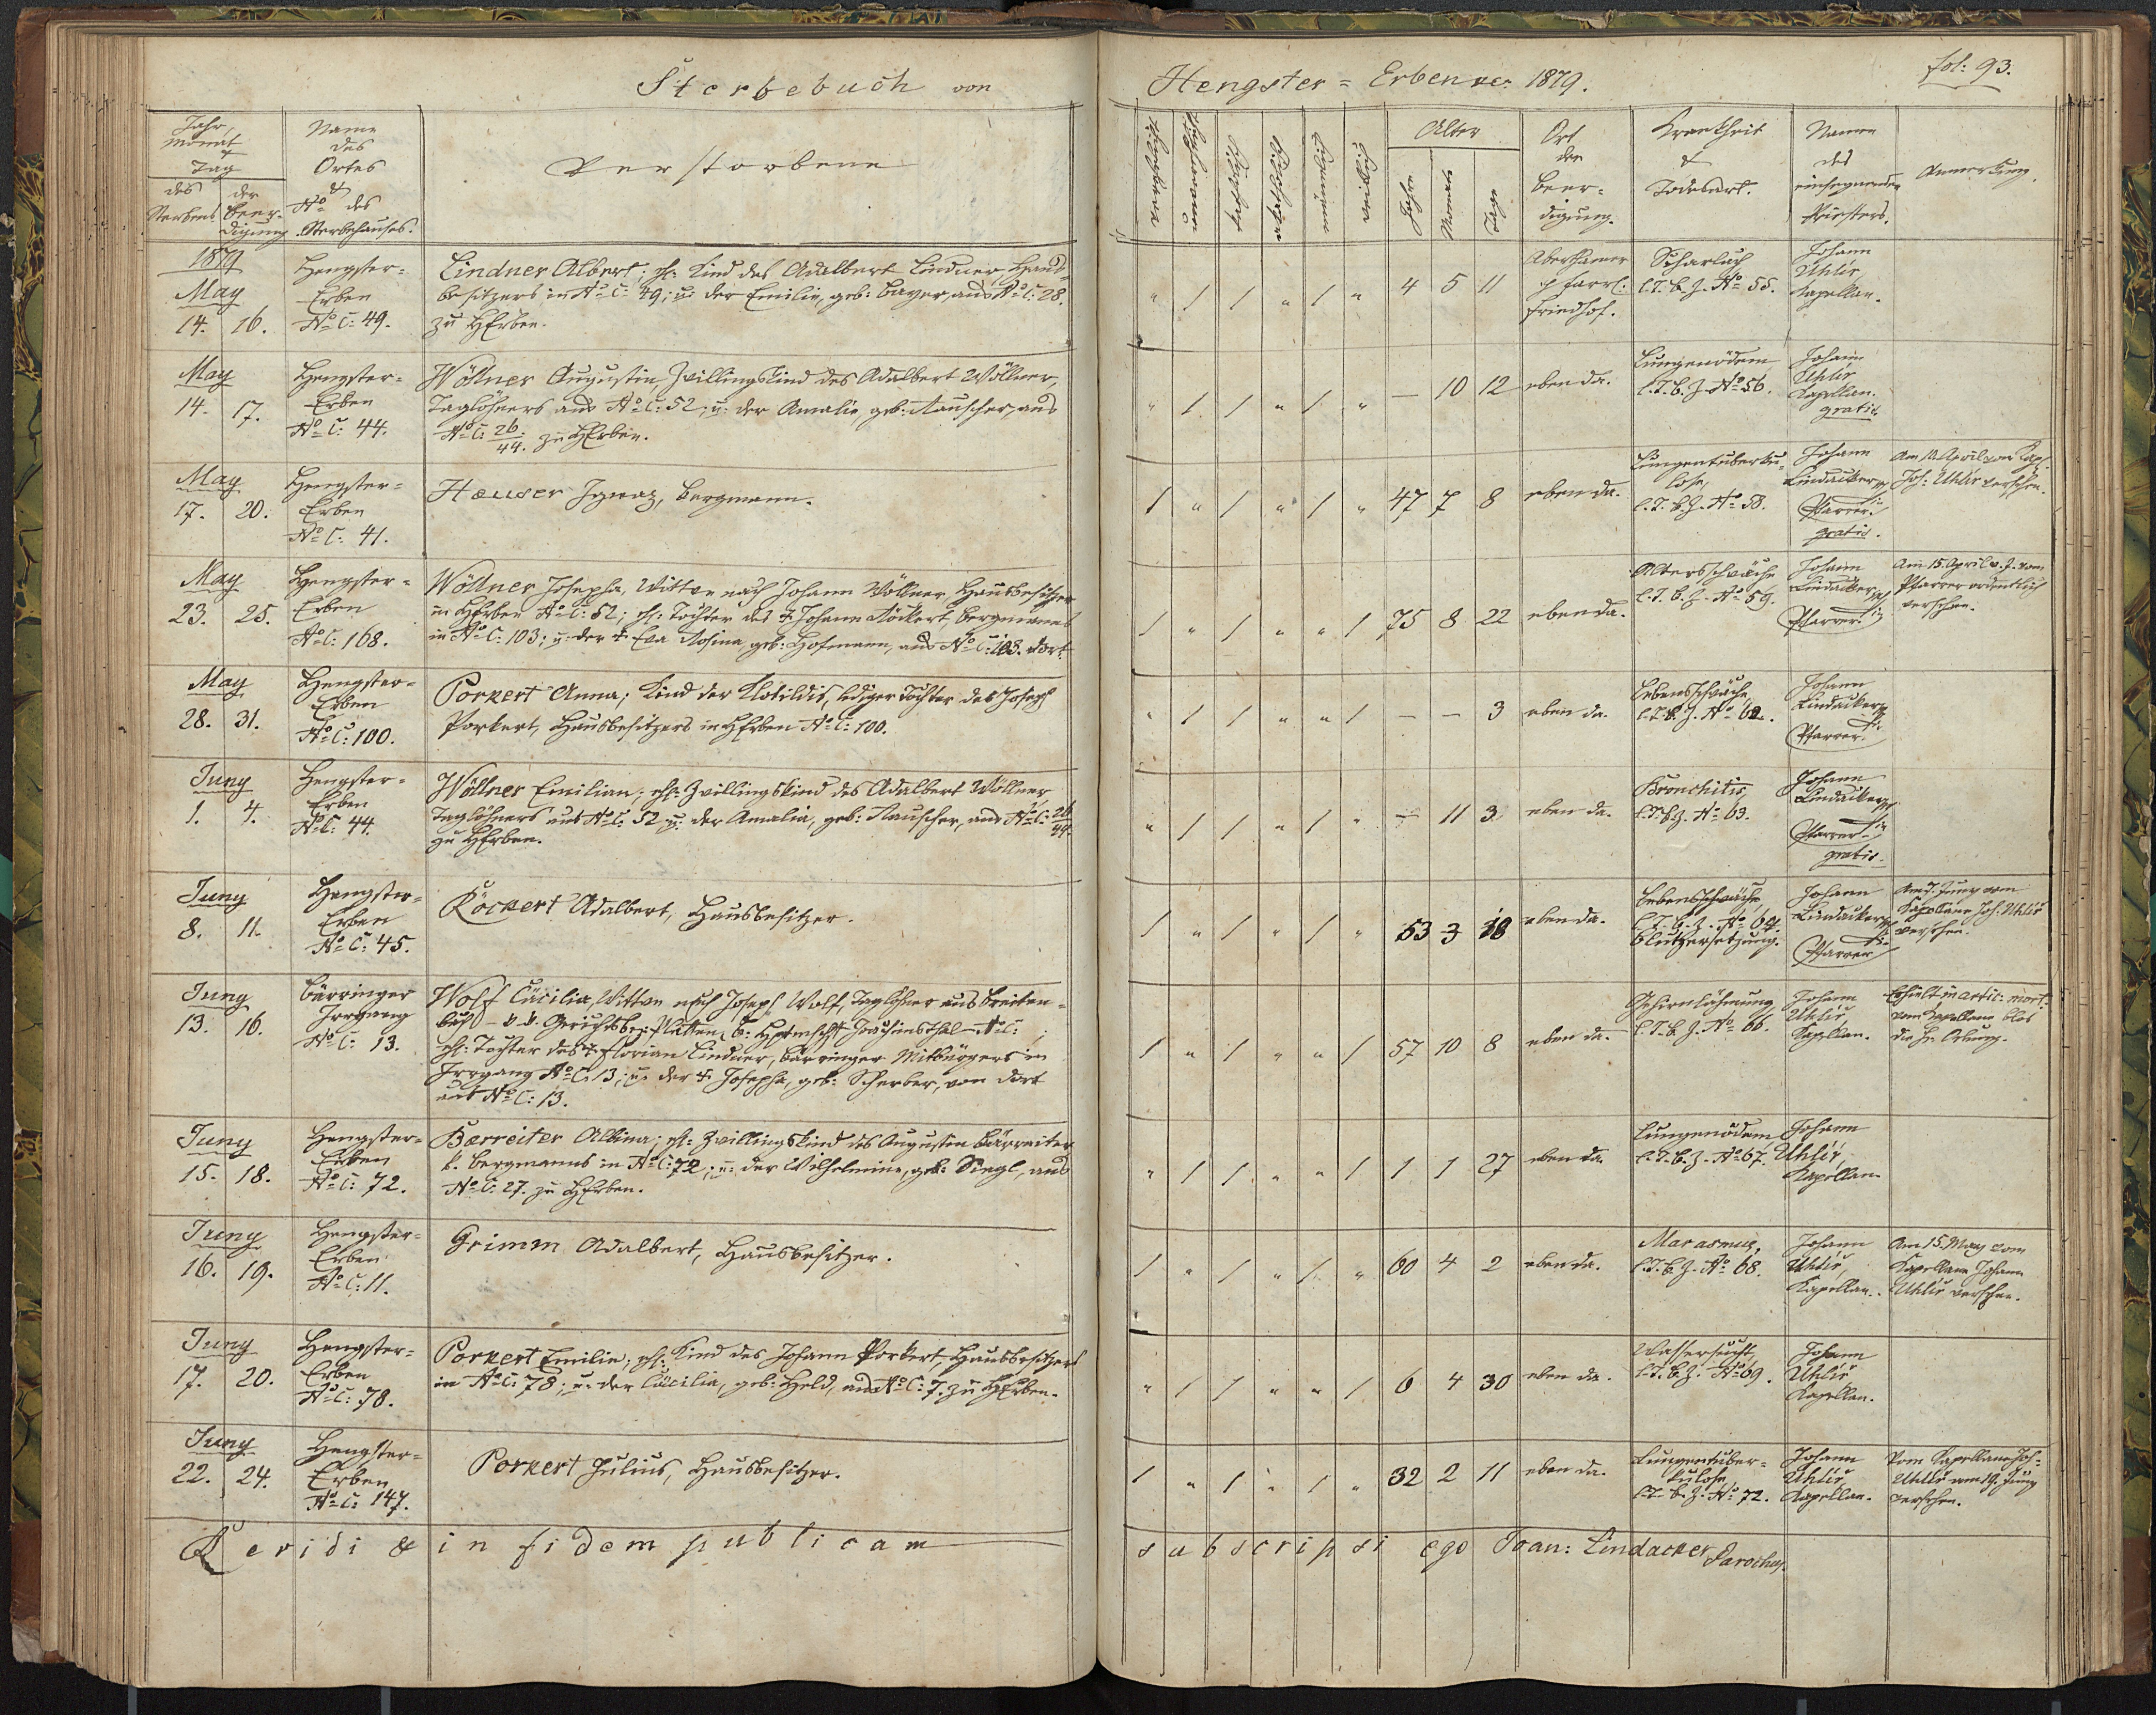 Sterbebuch von Hengster=Erben pro 1879. fol: 93.
Jahr, Monat & Tag
des Sterbens
der Beerdigung
Name des Ortes & No des Sterbehauses.
Verstorbene
Alter
Jahre
Monate
Tage
Ort der Beer=
digung.
Krankheit & Todesart.
Name des einsegnenden Priesters.
Anmerkung.
1879
May
14. 16.
Hengster=
Erben
No C: 49.
Lindner Albert; ehl: Kind des Adalbert Lindner, Haus=
besitzers in No C: 49; u: der Emilie, geb: Bayer, aus No C: 28.
zu HErben.
" / / " / " 4 5 11
Aberthamer
pfarrl:
Friedhof.
Scharlach
l. T. b. Z. No 55.
Johann
Uhlíř
Kapellan.
May
14. 17.
Hengster=
Erben
No C: 44.
Wöllner Augustin, Zwillingskind des Adalbert Wöllner,
Taglöhners aus No C: 52; u: der Amalie, geb: Rauscher, aus
No C: 26/44. zu HErben.
" / / " / " — 10 12
ebenda.
Lungenödem
l. T. b. Z. No 56.
Johann
Uhlíř
Kapellan.
gratis.
May
17. 20.
Hengster=
Erben
No C: 41.
Hauser Ignaz, Bergmann.
/ " / " / " 47 7 8
ebenda.
Lungentuberku=
lose,
l. T. b. Z. No 58.
Johann
Lindacker
Pfarrer
gratis.
Am 11. April vom Kap.
Joh: Uhlíř versehen.
May
23. 25.
Hengster=
Erben
No C: 168.
Wöllner Josepha, Wittwe nach Johann Wöllner Hausbesitzer
in HErben No C: 52; ehl: Tochter des † Johann Röckert, Bergmanns
in No C: 103; u: der † Eva Rosina, geb: Hofmann, aus No C: 103. dort.
/ " / " " / 75 8 22
ebenda.
Altersschwäche
l. T. b. Z. No 59.
Johann
Lindacker
Pfarrer
Am 15. April v. J. vom
Pfarrer ordentlich
versehen.
May
28. 31.
Hengster=
Erben
No C: 100.
Porkert Anna; Kind der Klotildis, lediger Tochter des Joseph
Porkert, Hausbesitzers in HErben No C: 100.
" / / " " / — — 3
ebenda.
Lebensschwäche,
l. T. b. Z. No 62.
Johann
Lindacker
Pfarrer
Juny
1. 4.
Hengster=
Erben
No C: 44.
Wöllner Emilian; ehl: Zwillingskind des Adalbert Wöllner
Taglöhners aus No C: 52 u: der Amalia, geb: Rauscher, aus No C: 26/44.
zu HErben.
" / / " / " — 11 3
ebenda.
Bronchitis,
l. T. b. Z. No 63.
Johann
Lindacker
Pfarrer
gratis.
Juny
8. 11.
Hengster=
Erben
No C: 45.
Röckert Adalbert, Hausbesitzer.
/ " / " / " 53 3 18
ebenda.
Lebensschwäche,
l. T. b. Z. No 64.
Blutzersetzung.
Johann
Lindacker
Pfarrer
Am 7. Juny vom
Kapellane Joh: Uhlíř
versehen.
Juny
13. 16.
Bärringer
Irrgang
No C: 13.
Wolf Cäcilia, Wittwe nach Joseph Wolf, Taglöhner aus Breiten=
bach – k. k. Gerichtsbez: Platten, B: Hptmschft Joachimsthal – No C: ;
ehl: Tochter des † Florian Lindner, Bärringer Mitbürgers in
Irrgang No C: 13; u: der † Josepha, geb: Scherber, von dort
aus No C: 13.
/ " / " " / 57 10 8
ebenda.
Gehirnlähmung
l. T. b. Z. No 66.
Johann
Uhlíř
Kapellan.
Erhielt in artic: mort:
vom Kapellane blos
die hl. Oelung.
Juny
15. 18.
Hengster=
Erben
No C: 72.
Barreiter Albina; ehl: Zwillingskind des Augustin Bärreiter
k. Bergmanns in No C: 72; u: der Wilhelmine, geb: Siegl, aus
No C: 27. zu HErben.
" / / " " / 1 1 27
ebenda.
Lungenödem,
l. T. b. Z. No 67.
Johann
Uhlíř,
Kapellan.
Juny
16. 19.
Hengster=
Erben
No C: 11.
Grimm Adalbert, Hausbesitzer.
/ " / " / " 60 4 2
ebenda.
Marasmus,
l. T. b. Z. No 68.
Johann
Uhlíř,
Kapellan.
Am 15. May vom
Kapellane Johann
Uhlíř versehen.
Juny
17. 20.
Hengster=
Erben
No C: 78.
Porkert Emilie; ehl: Kind des Johann Porkert, Hausbesitzers
in No C: 78; u: der Cäcilia, geb: Held, aus No C: 7. zu HErben.
" / / " " / 6 4 30
ebenda.
Wassersucht,
l. T. b. Z. No 69.
Johann
Uhlíř
Kapellan.
Juny
22. 24.
Hengster=
Erben
No C: 147.
Porkert Julius, Hausbesitzer.
/ " / " / " 32 2 11
ebenda.
Lungentuber=
kulose,
l. T. b. Z. No 72.
Johann
Uhlíř
Kapellan.
Vom Kapellane Joh:
Uhlíř am 19. Juny
versehen.
Revidi & in fidem publicam subscripsi ego Joan: Lindacker Parochus.